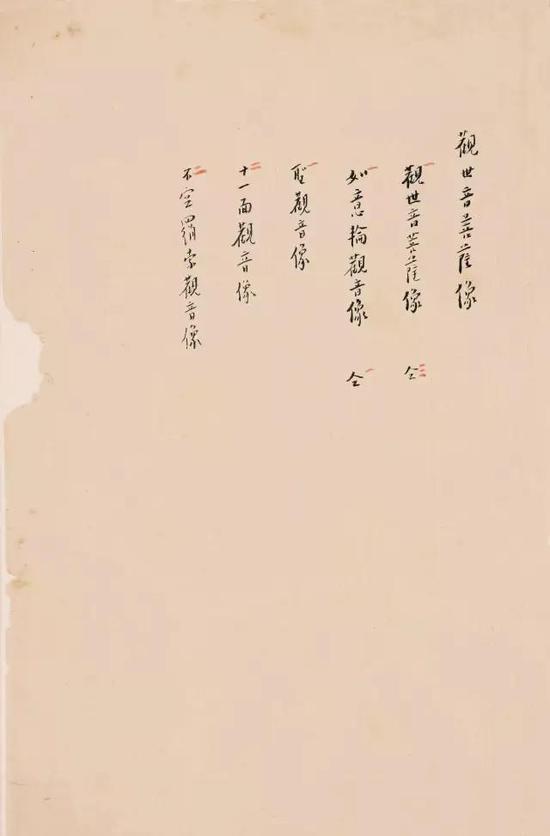 觀世音菩薩像
觀世音菩薩像 仝
如意輪觀音像 仝
聖觀音像
十一面觀音像
不空羂索觀音像